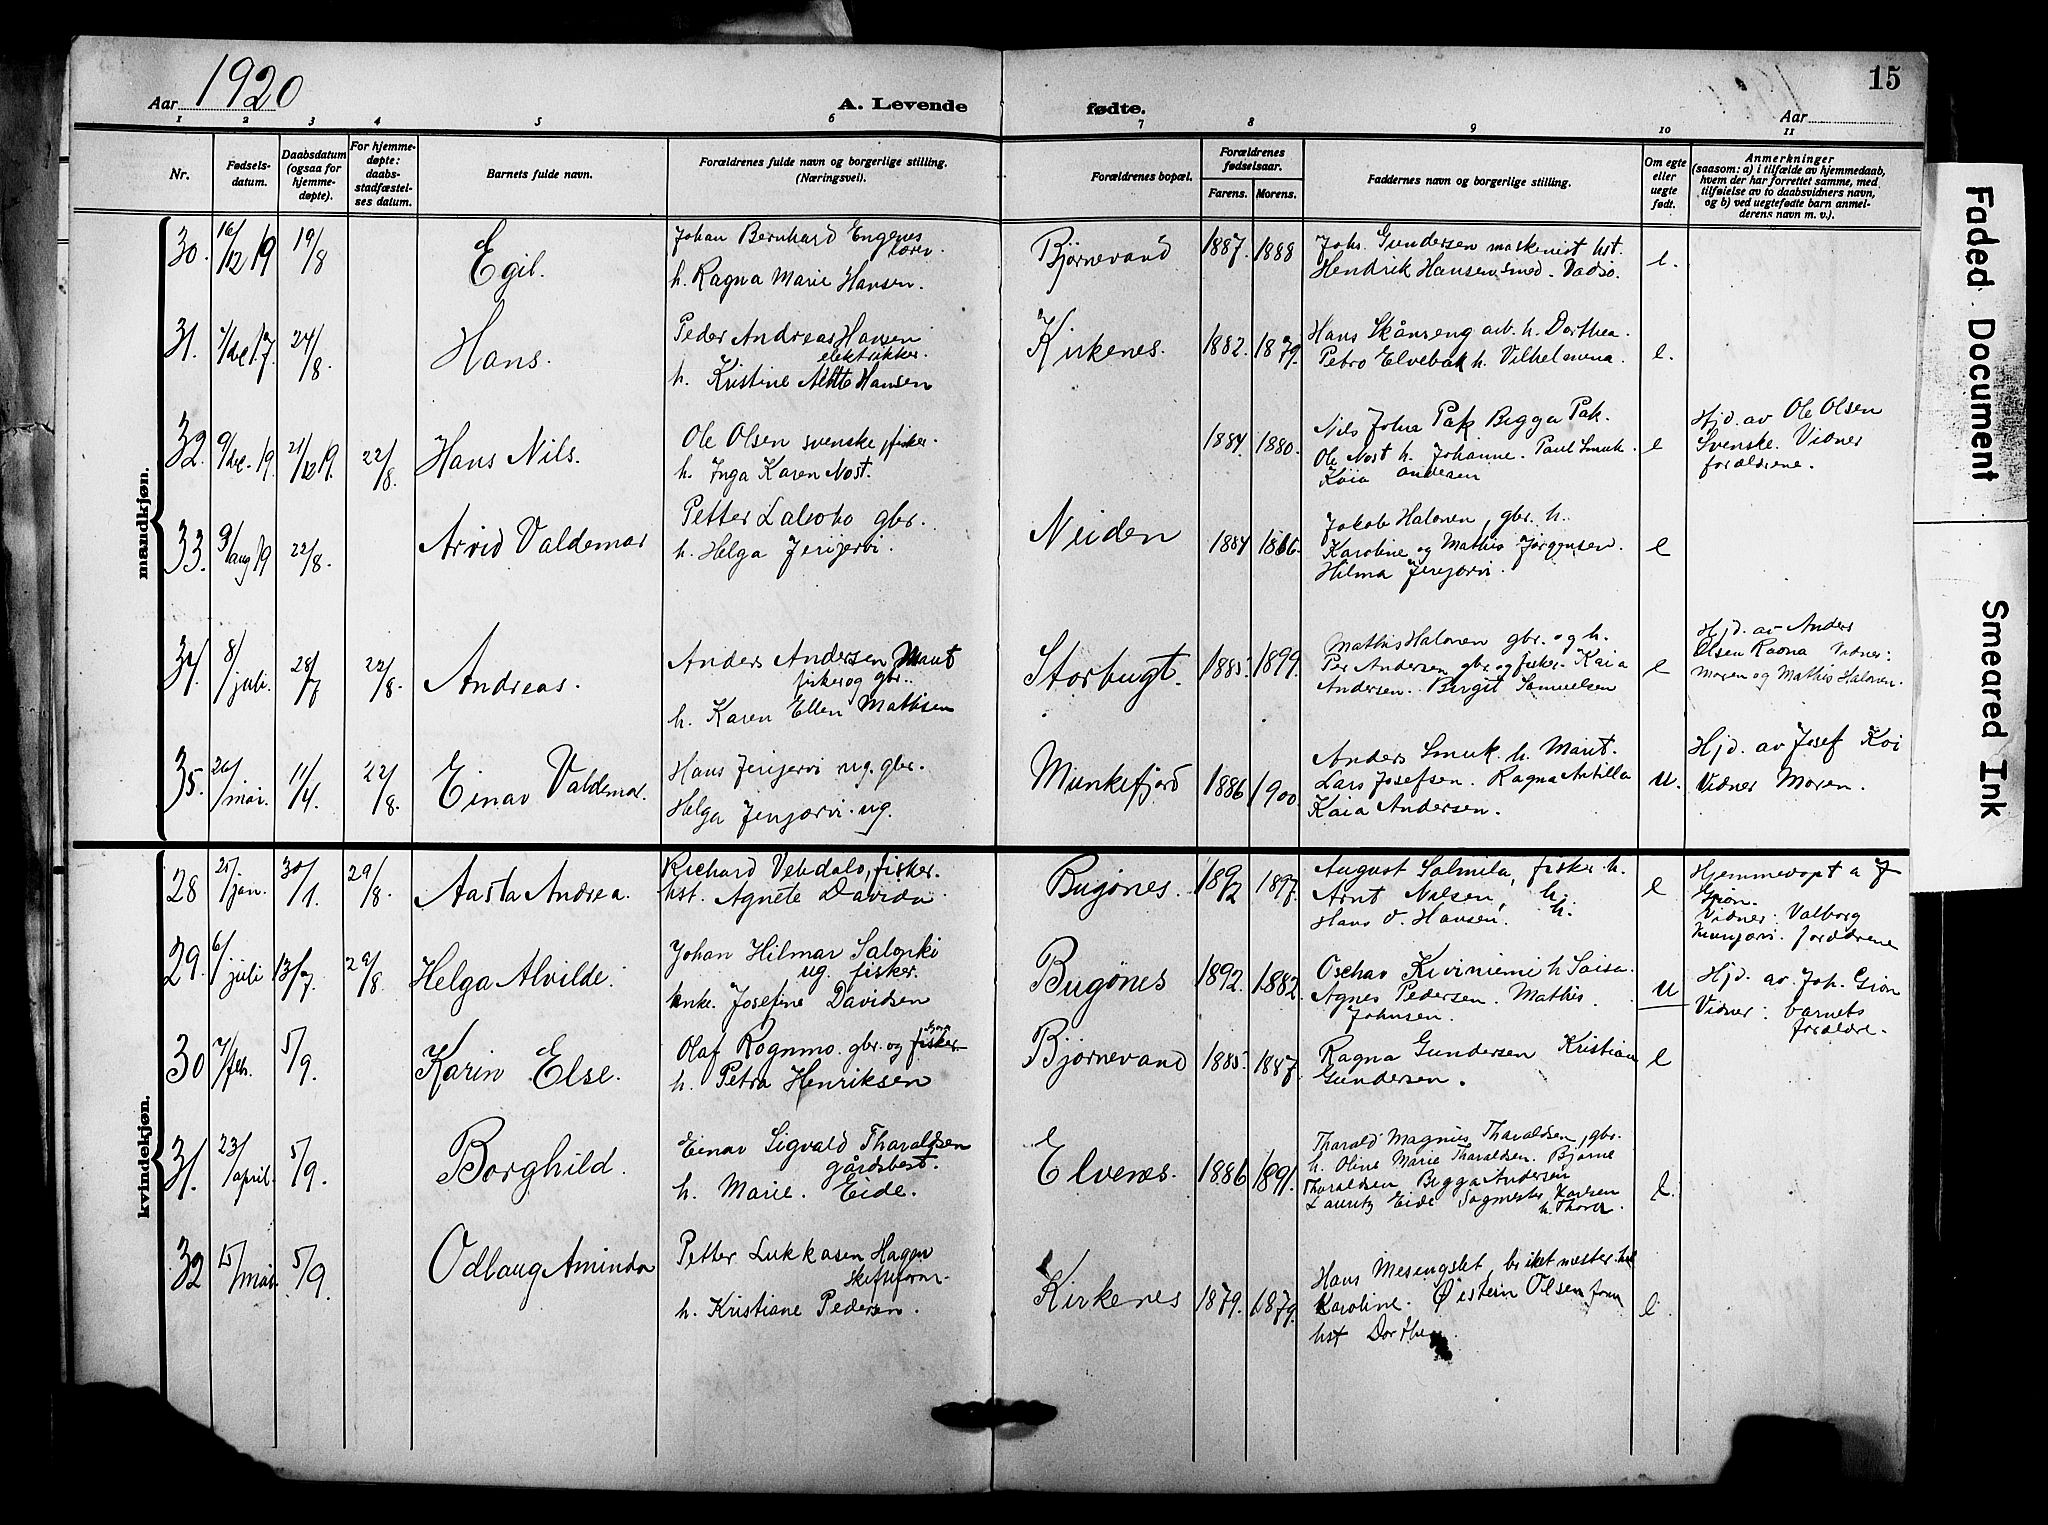 Aar 1920
A. Levende fødte.
Aar
15
1 2 3 4 5 6 7 8 9 10 11
Nr.
Fødsels-
datum.
Daabsdatum
(ogsaa for
hjemme-
døpte).
For hjemme-
døpte:
daabs-
stadfæstel-
ses datum.
Barnets fulde navn.
Forældrenes fulde navn og borgerlige stilling.
(Næringsvei).
Forældrenes bopæl.
Forældrenes
fødselsaar.
Farens. Morens.
Faddernes navn og borgerlige stilling.
Om egte
eller
uegte
født.
Anmerkninger
(saasom: a) i tilfælde av hjemmedaab,
hvem der har forrettet samme, med
tilføielse av to daabsvidners navn,
og b) ved uegtefødte barn anmel-
derens navn m. v.).
mandkjøn.
30. 16/12 19 19/8
Egil.
Johan Bernhard Engenes
h. Ragna Marie Hansen.
Bjørnevand
1887. 1888
Johs. Gundersen maskenist hst.
Hendrik Hansen, smed. Vadsø.
e.
31. 24/8
Hans.
Peder Andreas Hansen
elektrikker.
h. Kristine Hansen
Kirkenes.
1882. 1879.
Hans Skånseng arb. h. Dorthea.
Petro Elvebak h. Vilhelmina.
e.
32. 9/de. 19. 21/12 19. 22/8.
Hans Nils.
Ole Olsen svenske, fisker.
h. Inga Karen Nost.
1884. 1880.
Nils Johna Pak Bigga Pak.
Ole Nost h. Johanne. Paul Smuk.
Kaia Andersen
e
Hjd. av Ole Olsen
Svenske. Vidner
forældrene.
33. 9/aug 19 22/8.
Arvid Valdemar
Petter gbr.
h. Helga Jerijervi.
Neiden
1884
Jakob Halonen, gbr. h.
Karoline og Mathis Jørgensen.
Hilma Jerijærvi.
e
34. 8/juli. 28/7 22/8.
Andreas.
Anders Andersen
fisker og gbr..
h. Karen Ellen Mathisen
Storbugt.
1885. 1899.
Mathis Halonen gbr. og h.
Per Andersen gbr. og fisker. Kaia
Andersen. Birgit Samuelsen
e
Hjd. av Anders
Olsen Vidner:
Moren og Mathis Halonen.
35. 26/mai. 11/4 22/8.
Einar Valdemar.
Hans Jerijervi ug. gbr.
Helga Jerijærvi. ug.
Munkefjord
1886 1900
Anders Smuk h. Marit.
Lars Josefsen. Ragna
Kaia Andersen.
u.
Hjd. av Josef
Vidner Moren.
kvindekjøn.
28 21/jan. 30/1. 29/8.
Aasta Andrea.
Richard fisker.
hst. Agnete
Bugønes.
1892 1897.
August Salmila, fisker h.
Arnt Nilsen, h.
Hans O. Hansen. h.
e
Hjemmedøpt a J
Gjøn.
Vidner: Valborg
forældrene
29. 6/juli 13/7. 29/8.
Helga Alvilde.
Johan Hilmar
ug. fisker.
enke. Josefine Davidsen
Bugønes
1892. 1882.
Oschar Kiviniemi h
Agnes Pedersen. Mathis.
Johnsen.
u
Hjd. av. Joh. Gjøn
Vidner: barnets
forældre.
30 7/feb. 5/9.
Karin Else.
Olaf Rognmo. gbr. og fisker
h. Petra Henriksen
Bjørnevand
1885. 1887
Ragna Gundersen Kristian
Gundersen.
e
31. 23/april. 5/9.
Borghild.
Einar Sigvald Tharaldsen
gårdsbest.
h. Marie. Eide.
Elvenes.
1886 1891.
Tharald Magnus Tharaldsen, gbr.
h. Oline Marie Tharaldsen. Bjarne
Tharaldsen Bigga Andersen
Lauritz Eide Sagmester Karlsen
h. Thora.
e.
32 15/mai. 5/9.
Odlaug Aminda
Petter Lukkasen Hagen
h. Kristiane Pedersen.
Kirkenes
1879. 1879.
Hans mester. hst
Karoline. Øistein Olsen form
hst Dorthea.
e
Faded Document
Smeared Ink